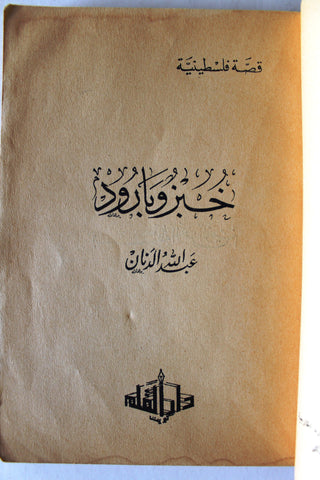 قصّة فلسطينيّة
خُبز وَبَارُود
عبد الله الدنان
دار القلم
كويت